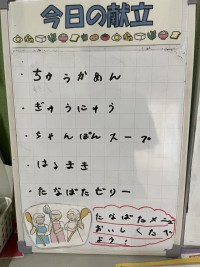 今日の献立
・ちゅうかめん
・ぎゅうにゅう
・ちゃんぽんスープ
・はるまき
・たなばたゼリー
たなばたメニュー
おいしくたべ
よう！